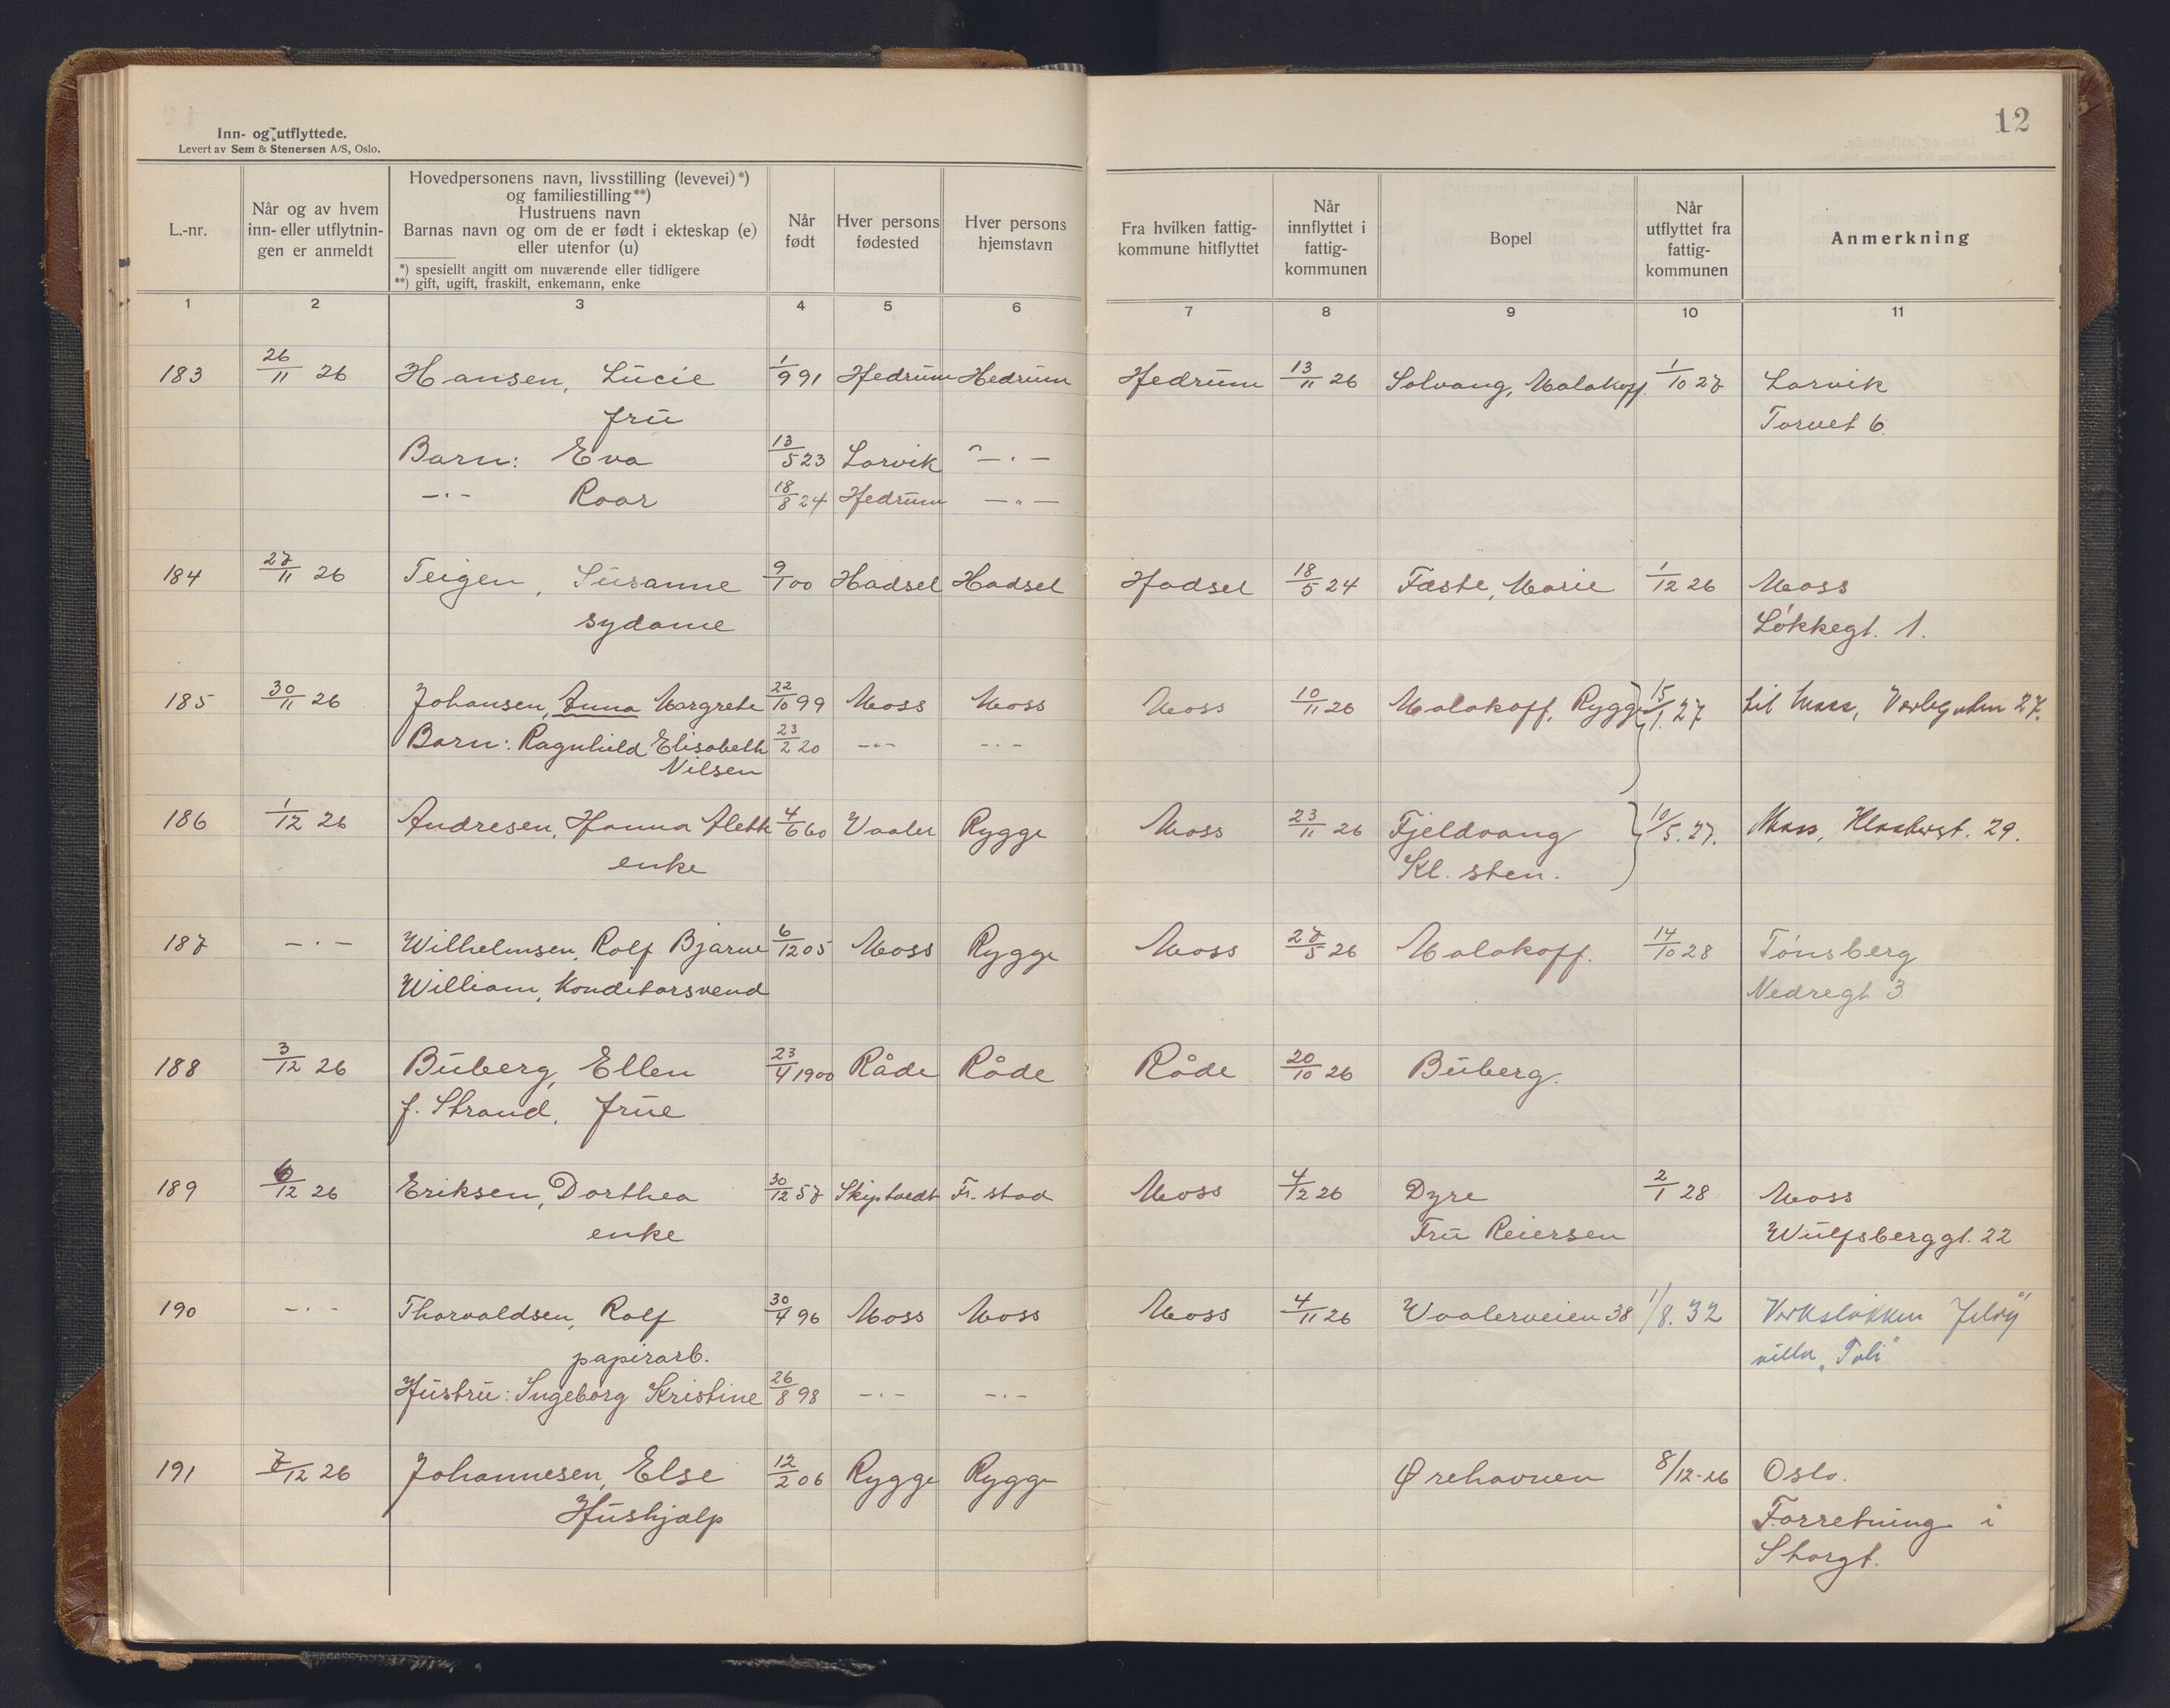 12
Inn- og utflyttede.
Levert av Sem & Stenersen A/S, Oslo.
L.-nr.
Når og av hvem
inn- eller utflytnin-
gen er anmeldt
Hovedpersonens navn, livsstilling (levevei)*)
og familiestilling**)
Hustruens navn
Barnas navn og om de er født i ekteskap (e)
eller utenfor (u)
*) spesielt angitt om nuværende eller tidligere
**) gift, ugift, fraskilt, enkemann, enke
Når
født
Hver persons
fødested
Hver persons
hjemstavn
Fra hvilken fattig-
kommune hitflyttet
Når
innflyttet i
fattig-
kommunen
Bopel
Når
utflyttet fra
fattig-
kommunen
Anmerkning
1 2 3 4 5 6 7 8 9 10 11
183 26/11 26 Hansen, Lucie 1/9 91 Hedrum Hedrum Hedrum 13/11 26 Solvang, Malakoff. 1/10 27 Larvik
fru Torvet 6.
Barn: Eva 13/5 23 Larvik -"-
-"- Roar 18/8 24 Hedrum -"-
184 27/11 26 Teigen, Susanne 9/1 00 Hadsel Hadsel Hadsel 18/5 24 Fæste, Marie 1/12 26 Moss
sydame Løkkegt. 1.
185 30/11 26 Johansen, Anna Margrete 22/10 99 Moss Moss Moss 10/11 26 Malakoff, Rygge 15/1. 27 til Moss, Værlegaten 27.
Barn: Ragnhild Elisabeth 23/2 20 -"- -"-
Nilsen
186 1/12 26 Andresen, Hanna Aleth 4/6 60 Vaaler Rygge Moss 23/11 26 Fjeldvang 10/5. 27. Moss, Klostergt. 29.
enke Kl. sten.
187 -"- Wilhelmsen, Rolf Bjarne 6/12 05 Moss Rygge Moss 27/5 26 Malakoff. 14/10 28 Tønsberg
William, Konditorsvend Nedregt 3
188 3/12 26 Buberg, Ellen 23/4 1900 Råde Råde Råde 20/10 26 Buberg.
f. Strand, frue
189 6/12 26 Eriksen, Dorthea 30/12 57 Skiptvedt Fr.stad Moss 4/12 26 Dyre 2/1 28 Moss
enke Fru Reiersen Wulfsberggt. 22
190 -"- Thorvaldsen, Rolf 30/4 96 Moss Moss Moss 4/11 26 Vaalerveien 38 1/8. 32 Verksløkken Jeløy
papirarb. villa "Toli"
Hustru: Ingeborg Kristine 26/8 98 -"- -"-
191 7/12 26 Johannesen, Else 12/2 06 Rygge Rygge Ørehavnen 8/12-26 Oslo.
Hushjælp Forretning i
Storgt.